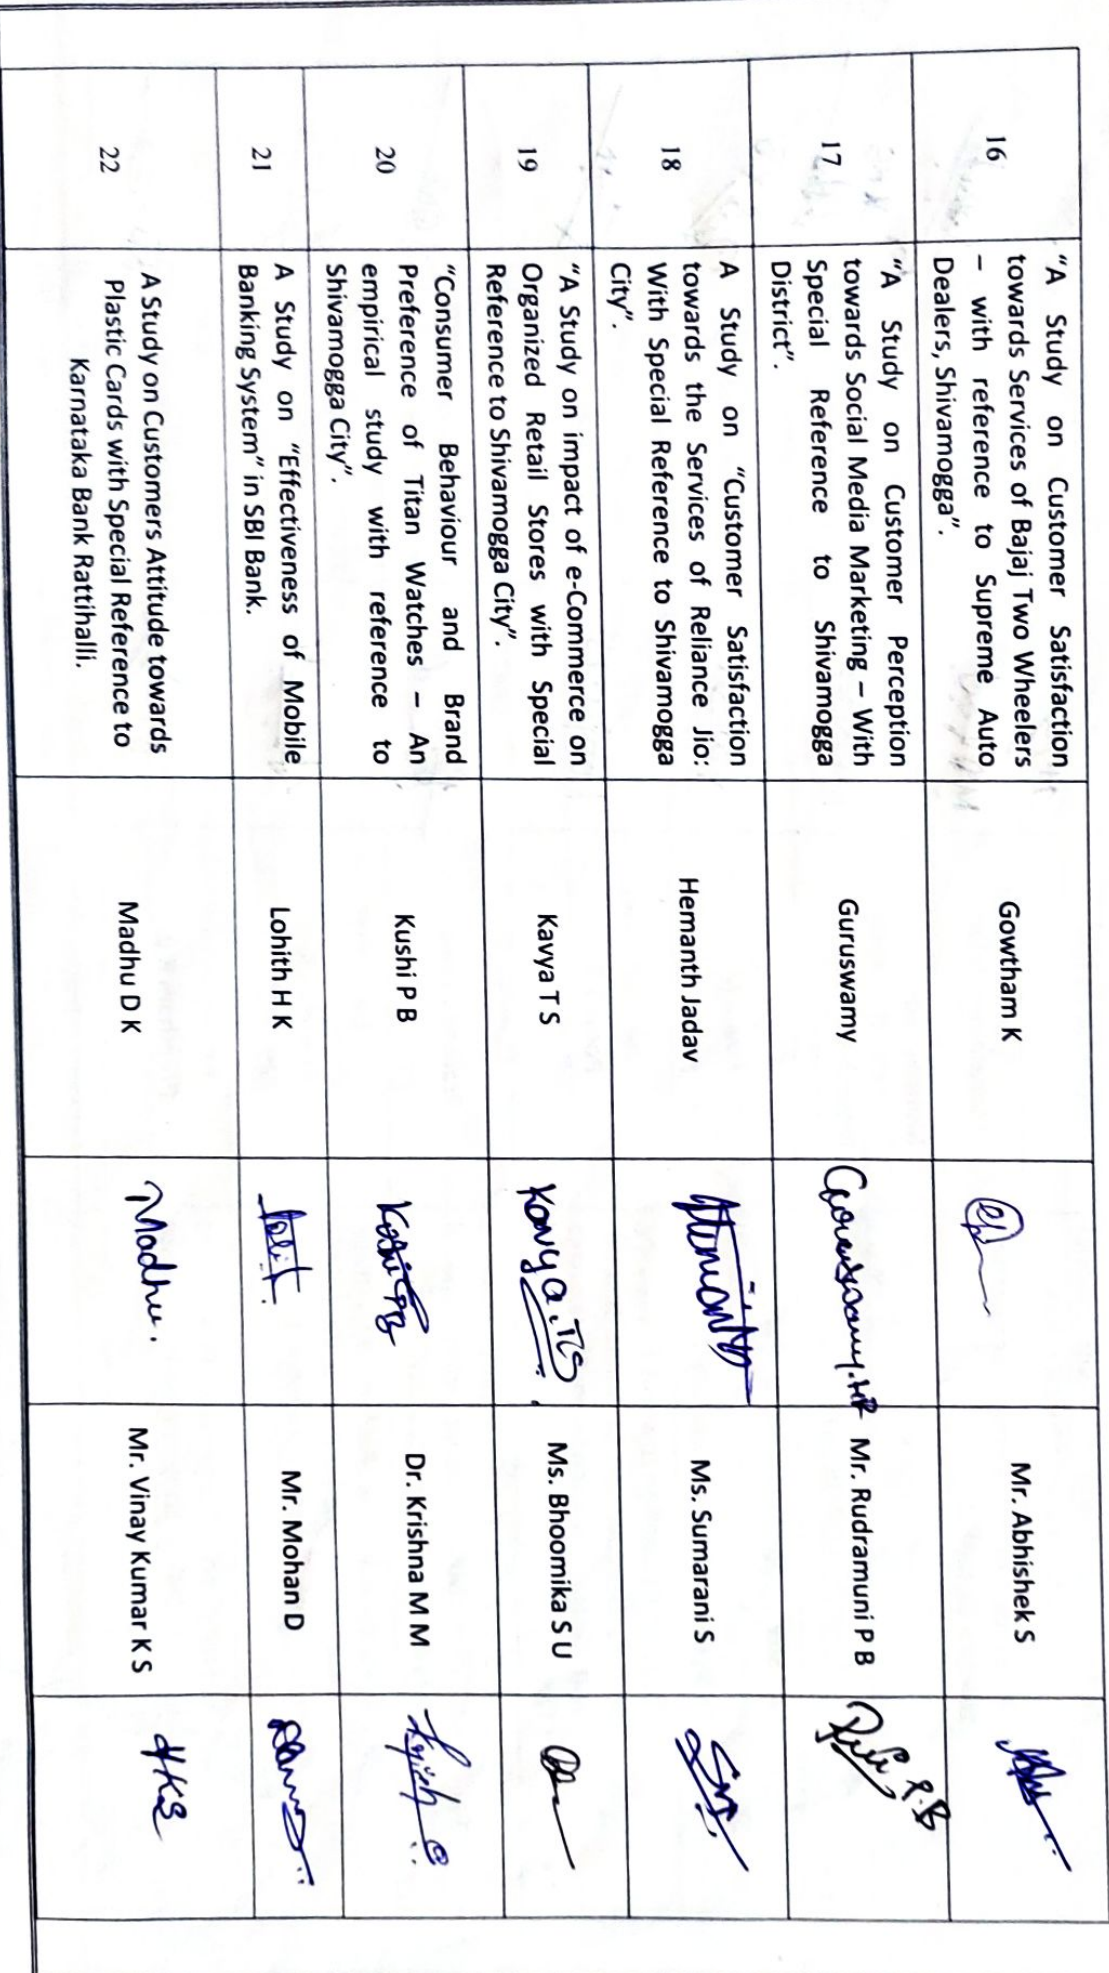 16
"A Study on Customer Satisfaction
towards Services of Bajaj Two Wheelers
– with reference to Supreme Auto
Dealers, Shivamogga".
Gowtham K
Mr. Abhishek S
17
"A Study on Customer Perception
towards Social Media Marketing – With
Special Reference to Shivamogga
District".
Guruswamy
Guruswamy.HP
Mr. Rudramuni P B
18
A Study on "Customer Satisfaction
towards the Services of Reliance Jio:
With Special Reference to Shivamogga
City".
Hemanth Jadav
Ms. Sumarani S
19
"A Study on impact of e-Commerce on
Organized Retail Stores with Special
Reference to Shivamogga City".
Kavya T S
Kavya.T.S
Ms. Bhoomika S U
20
"Consumer Behaviour and Brand
Preference of Titan Watches – An
empirical study with reference to
Shivamogga City".
Kushi P B
Kushi PB
Dr. Krishna M M
21
A Study on "Effectiveness of Mobile
Banking System" in SBI Bank.
Lohith H K
Mr. Mohan D
22
A Study on Customers Attitude towards
Plastic Cards with Special Reference to
Karnataka Bank Rattihalli.
Madhu D K
Madhu.
Mr. Vinay Kumar K S